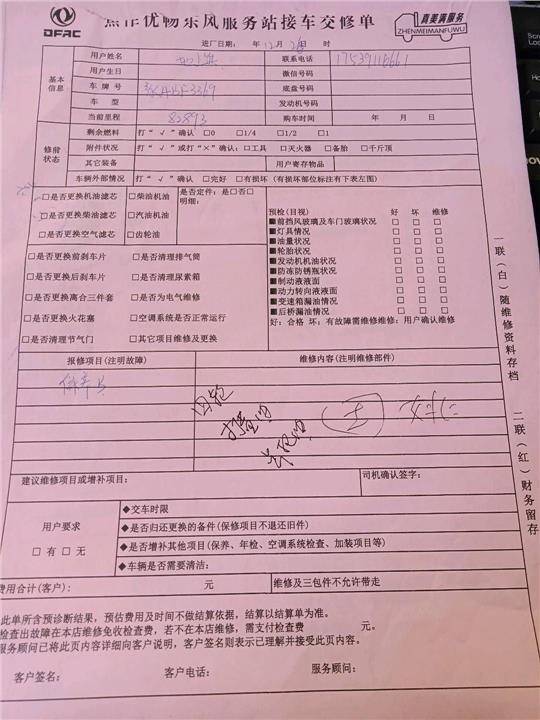 DFAC
焦作优畅东风服务站接车交修单
真美满服务
ZHENMEIMANFUWU
进厂日期: 年 12 月 26 时
基本信息
用户姓名 联系电话
用户生日 微信号码
车 牌 号 底盘号码
车 型 发动机号码
当前里程 82893 购车时间 年 月 日
修前状态
剩余燃料 打“√”确认 □0 □1/4 □1/2 □1
附件状况 打“√”或打“×”确认: □工具 □灭火器 □备胎 □千斤顶
其它装备 用户寄存物品
车辆外部情况 打“√”确认 □完好 □有损坏 (有损坏部位标注有下表左图)
□是否更换机油滤芯 □柴油机油 是否定件: 是□否□
明细:
□是否更换柴油滤芯 □汽油机油
□是否更换空气滤芯 □齿轮油
预检(目视) 好 坏 维修
■前挡风玻璃及车门玻璃状况 □ □ □
■灯具情况 □ □ □
■油量状况 □ □ □
■轮胎状况 □ □ □
■发动机机油状况 □ □ □
■防冻防锈瓶状况 □ □ □
■制动液液面 □ □ □
■动力转向液液面 □ □ □
■变速箱漏油情况 □ □ □
■后桥漏油情况 □ □ □
好: 合格 坏: 有故障需维修维修: 用户确认维修
□是否更换前刹车片 □是否清理排气筒
□是否更换后刹车片 □是否清理尿素箱
□是否更换离合三件套 □是否为电气维修
□是否更换火花塞 □空调系统是否正常运行
□是否清理节气门 □其它项目维修及更换
报修项目(注明故障) 维修内容(注明维修部件)
保养
建议维修项目或增补项目: 司机确认签字:
用户要求
□有 □无
◆交车时限
◆是否归还更换的备件(保修项目不退还旧件)
◆是否增补其他项目(保养、年检、空调系统检查、加装项目等)
◆车辆是否需要清洁:
费用合计(客户): 元 维修及三包件不允许带走
此单所含预诊断结果, 预估费用及时间不做结算依据, 结算以结算单为准。
检查出故障在本店维修免收检查费, 若不在本店维修, 需支付检查费 元。
服务顾问已将此页内容详细向客户说明, 客户签名则表示已理解并接受此页内容。
客户签名: 客户电话: 服务顾问:
一联(白)随维修资料存档
二联(红)财务留存